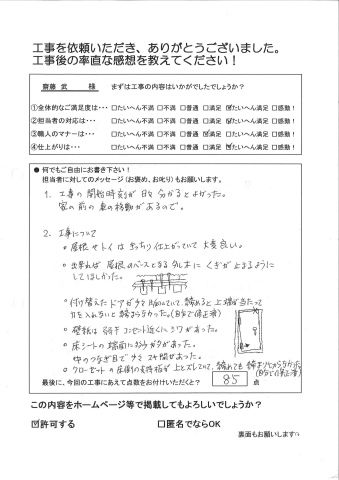 工事を依頼いただき、ありがとうございました。
工事後の率直な感想を教えてください！
齋藤 武 様 まずは工事の内容はいかがでしたでしょうか？
①全体的なご満足度は・・・ □たいへん不満 □不満 □普通 □満足 ☑たいへん満足 □感動！
②担当者の対応は・・・ □たいへん不満 □不満 □普通 □満足 ☑たいへん満足 □感動！
③職人のマナーは・・・ □たいへん不満 □不満 □普通 ☑満足 □たいへん満足 □感動！
④仕上がりは・・・ □たいへん不満 □不満 □普通 □満足 ☑たいへん満足 □感動！
● 何でもご自由にお書き下さい！
担当者に対してのメッセージ（お褒め、お叱り）もお願いします。
1. 工事の開始時刻が日々分かるとよかった。
家の前の車の移動があるので。
2. 工事について
○ 屋根やトイはきっちり仕上がっていて大変良い。
○ 出来れば屋根のベースとなる外木にくぎが止まるように
してほしかった。
○ 付け替えたドアが
締めると上端が当たって
力を入れないと締まらなかった。（自分で修正済）
○ 壁紙は コンセント近くにシワがあった。
○ 床シートの端面に
があった。
中のつなぎ目で スキ間があった。
○ クローゼットの 上にズレていて、締めても
（自分で修正済）
最後に、今回の工事にあえて点数をお付けいただくと？ 85 点
この内容をホームページ等で掲載してもよろしいでしょうか？
☑許可する □匿名でならOK
裏面もお願いします